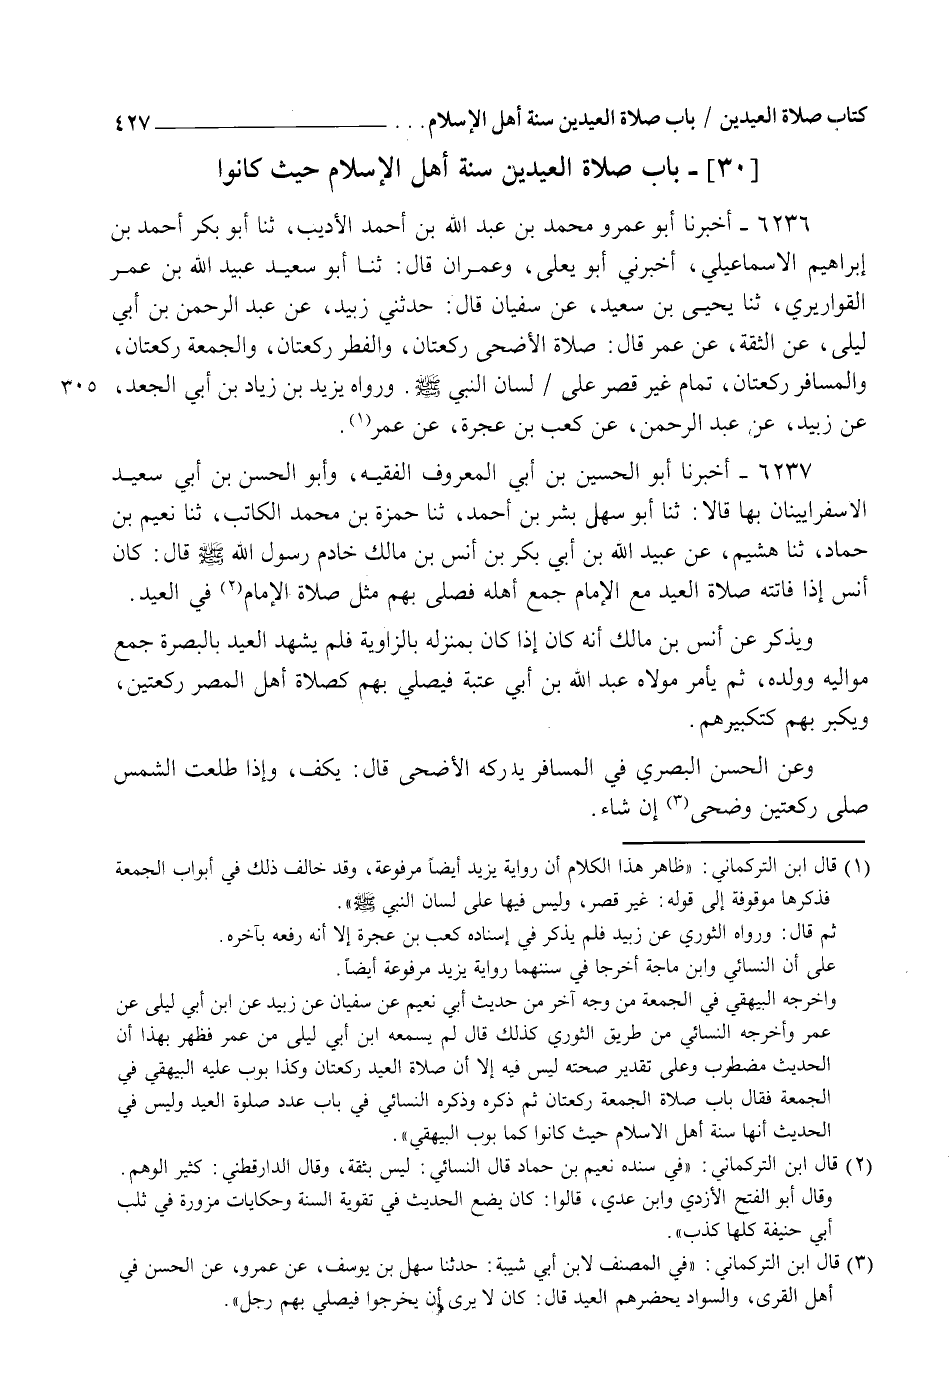 كتاب صلاة العيدين / باب صلاة العيدين سنة أهل الإسلام . . . ــــــــــــــــــــــــ ٤٢٧
[٣٠] ـ باب صلاة العيدين سنة أهل الإسلام حيث كانوا
٦٢٣٦ ـ أخبرنا أبو عمرو محمد بن عبد الله بن أحمد الأديب، ثنا أبو بكر أحمد بن
إبراهيم الاسماعيلي، أخبرني أبو يعلى، وعمران قال: ثنا أبو سعيد عبيد الله بن عمر
القواريري، ثنا يحيى بن سعيد، عن سفيان قال: حدثني زبيد، عن عبد الرحمن بن أبي
ليلى، عن الثقة، عن عمر قال: صلاة الأضحى ركعتان، والفطر ركعتان، والجمعة ركعتان،
والمسافر ركعتان، تمام غير قصر على / لسان النبي ﷺ. ورواه يزيد بن زياد بن أبي الجعد، ٣٠٥
عن زبيد، عن عبد الرحمن، عن كعب بن عجرة، عن عمر(١).
٦٢٣٧ ـ أخبرنا أبو الحسين بن أبي المعروف الفقيه، وأبو الحسن بن أبي سعيد
الاسفرايينان بها قالا: ثنا أبو سهل بشر بن أحمد، ثنا حمزة بن محمد الكاتب، ثنا نعيم بن
حماد، ثنا هشيم، عن عبيد الله بن أبي بكر بن أنس بن مالك خادم رسول الله ﷺ قال: كان
أنس إذا فاتته صلاة العيد مع الإمام جمع أهله فصلى بهم مثل صلاة الإمام(٢) في العيد.
ويذكر عن أنس بن مالك أنه كان إذا كان بمنزله بالزاوية فلم يشهد العيد بالبصرة جمع
مواليه وولده، ثم يأمر مولاه عبد الله بن أبي عتبة فيصلي بهم كصلاة أهل المصر ركعتين،
ويكبر بهم كتكبيرهم.
وعن الحسن البصري في المسافر يدركه الأضحى قال: يكف، وإذا طلعت الشمس
صلى ركعتين وضحى(٣) إن شاء.
(١) قال ابن التركماني: «ظاهر هذا الكلام أن رواية يزيد أيضاً مرفوعة، وقد خالف ذلك في أبواب الجمعة
فذكرها موقوفة إلى قوله: غير قصر، وليس فيها على لسان النبي ﷺ».
ثم قال: ورواه الثوري عن زبيد فلم يذكر في إسناده كعب بن عجرة إلا أنه رفعه بآخره.
على أن النسائي وابن ماجة أخرجا في سننهما رواية يزيد مرفوعة أيضاً.
واخرجه البيهقي في الجمعة من وجه آخر من حديث أبي نعيم عن سفيان عن زبيد عن ابن أبي ليلى عن
عمر وأخرجه النسائي من طريق الثوري كذلك قال لم يسمعه ابن أبي ليلى من عمر فظهر بهذا أن
الحديث مضطرب وعلى تقدير صحته ليس فيه إلا أن صلاة العيد ركعتان وكذا بوب عليه البيهقي في
الجمعة فقال باب صلاة الجمعة ركعتان ثم ذكره وذكره النسائي في باب عدد صلوة العيد وليس في
الحديث أنها سنة أهل الاسلام حيث كانوا كما بوب البيهقي».
(٢) قال ابن التركماني: «في سنده نعيم بن حماد قال النسائي: ليس بثقة، وقال الدارقطني: كثير الوهم.
وقال أبو الفتح الأزدي وابن عدي، قالوا: كان يضع الحديث في تقوية السنة وحكايات مزورة في ثلب
أبي حنيفة كلها كذب».
(٣) قال ابن التركماني: «في المصنف لابن أبي شيبة: حدثنا سهل بن يوسف، عن عمرو، عن الحسن في
أهل القرى، والسواد يحضرهم العيد قال: كان لا يرى أن يخرجوا فيصلي بهم رجل».